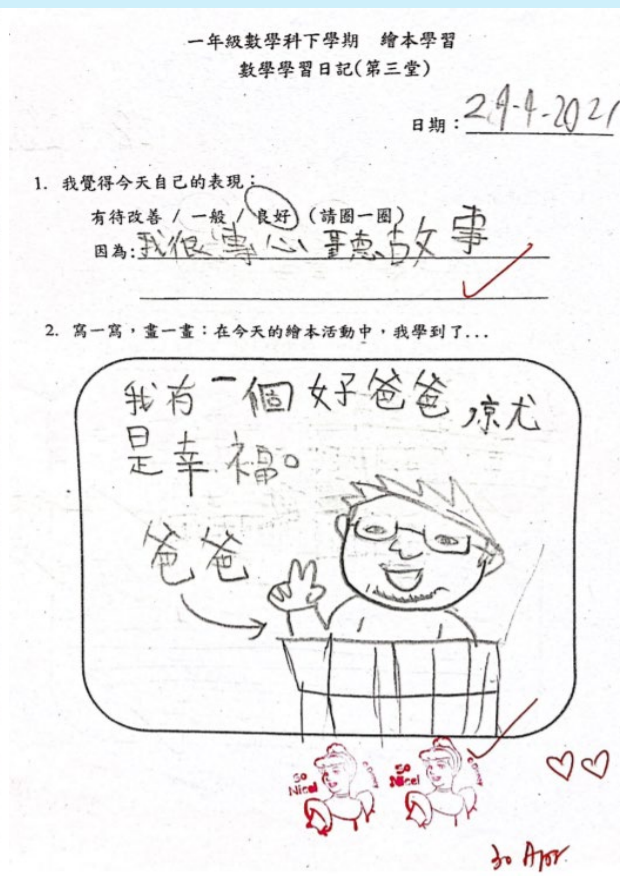 一年級數學科下學期　繪本學習
數學學習日記(第三堂)
日期：29-4-2021
1. 我覺得今天自己的表現：
有待改善 / 一般 / 良好 (請圈一圈)
因為:我很專心聽故事
2. 寫一寫，畫一畫：在今天的繪本活動中，我學到了...
我有一個好爸爸,原尤
是幸福。
爸爸
so Nice!
so Nice!
30 Apr.